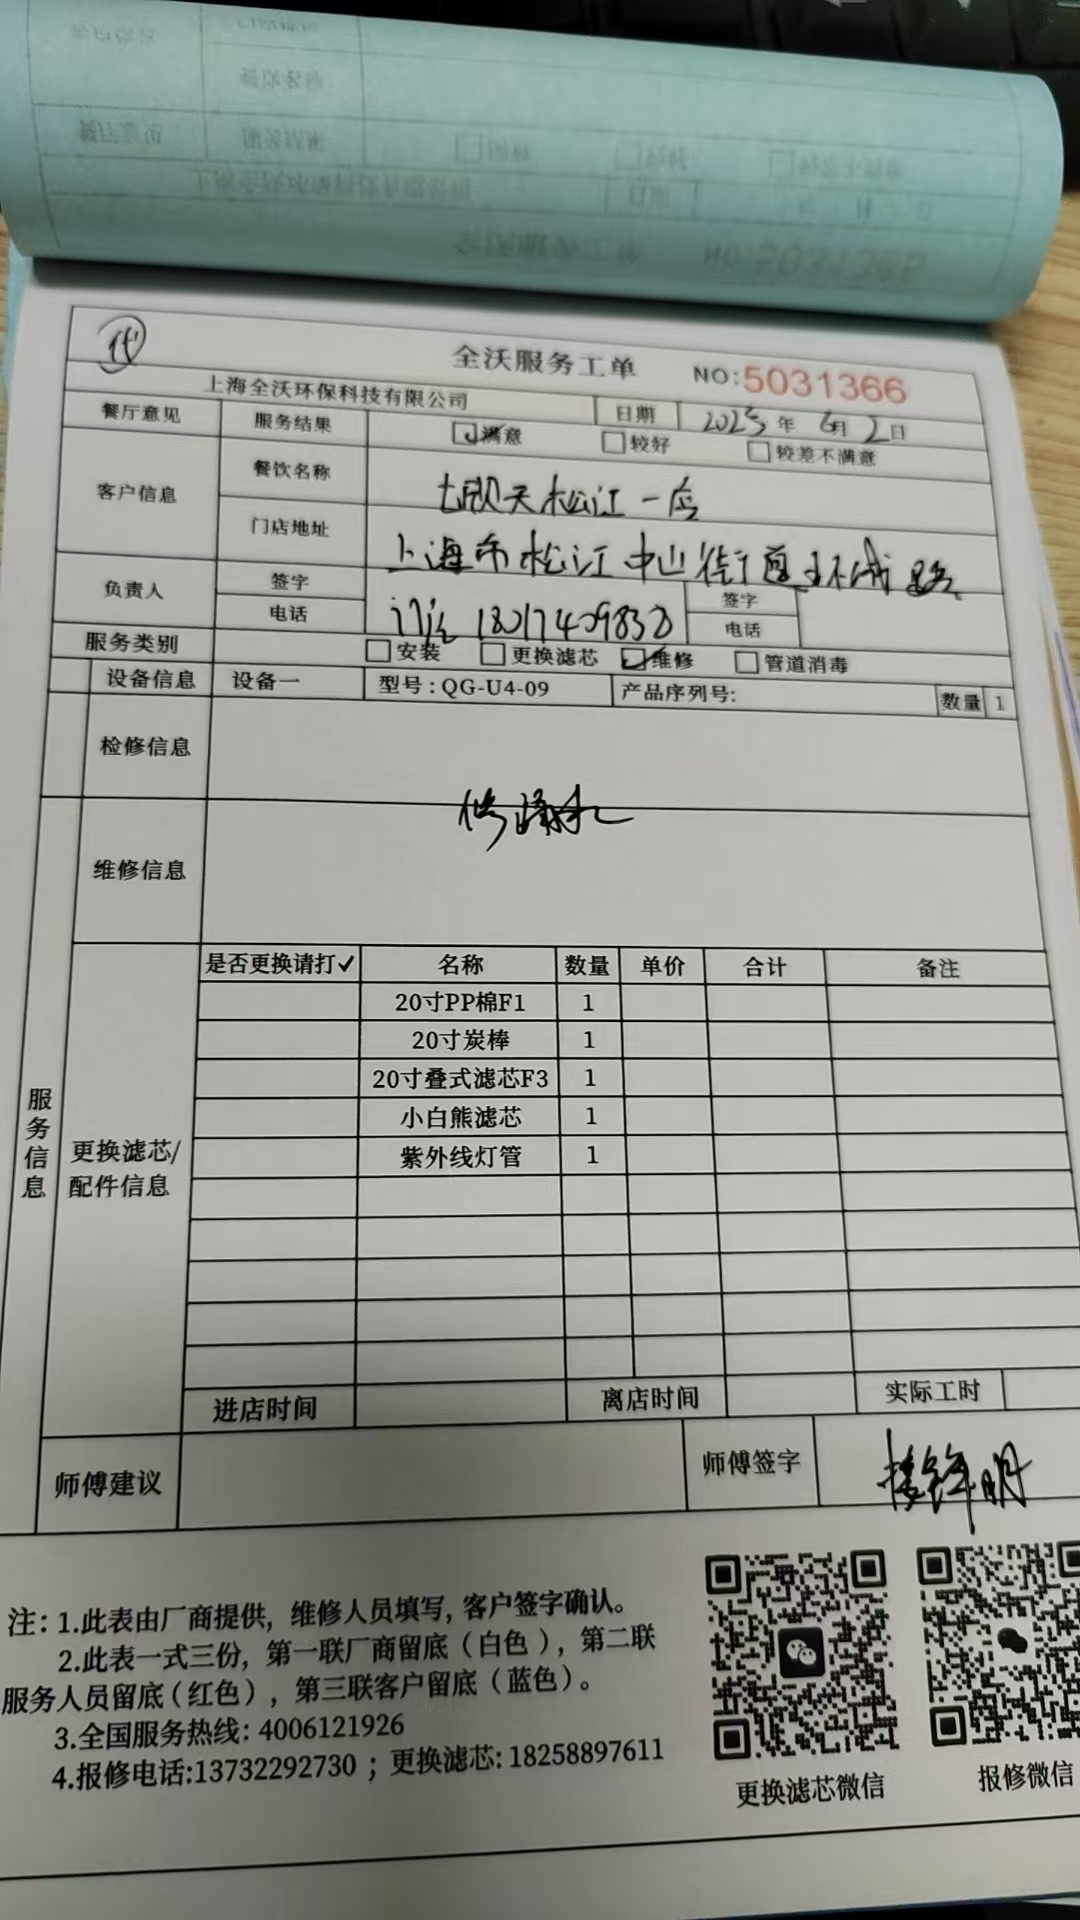 代
全沃服务工单 NO:5031366
上海全沃环保科技有限公司 日期 2025年 6月 2日
餐厅意见 服务结果 ☑满意 □较好 □较差不满意
客户信息 餐饮名称 七欣天松江一店
门店地址 上海市松江中山街道环城路
负责人 签字 签字
电话 18217409838 电话
服务类别 □安装 □更换滤芯 ☑维修 □管道消毒
设备信息 设备一 型号:QG-U4-09 产品序列号: 数量 1
检修信息
修漏水
维修信息
服务信息
更换滤芯/配件信息
是否更换请打✓ 名称 数量 单价 合计 备注
20寸PP棉F1 1
20寸炭棒 1
20寸叠式滤芯F3 1
小白熊滤芯 1
紫外线灯管 1
进店时间 离店时间 实际工时
师傅建议 师傅签字
注: 1.此表由厂商提供, 维修人员填写, 客户签字确认。
2.此表一式三份, 第一联厂商留底(白色), 第二联
服务人员留底(红色), 第三联客户留底(蓝色)。
3.全国服务热线: 4006121926
4.报修电话:13732292730 ; 更换滤芯: 18258897611
更换滤芯微信 报修微信